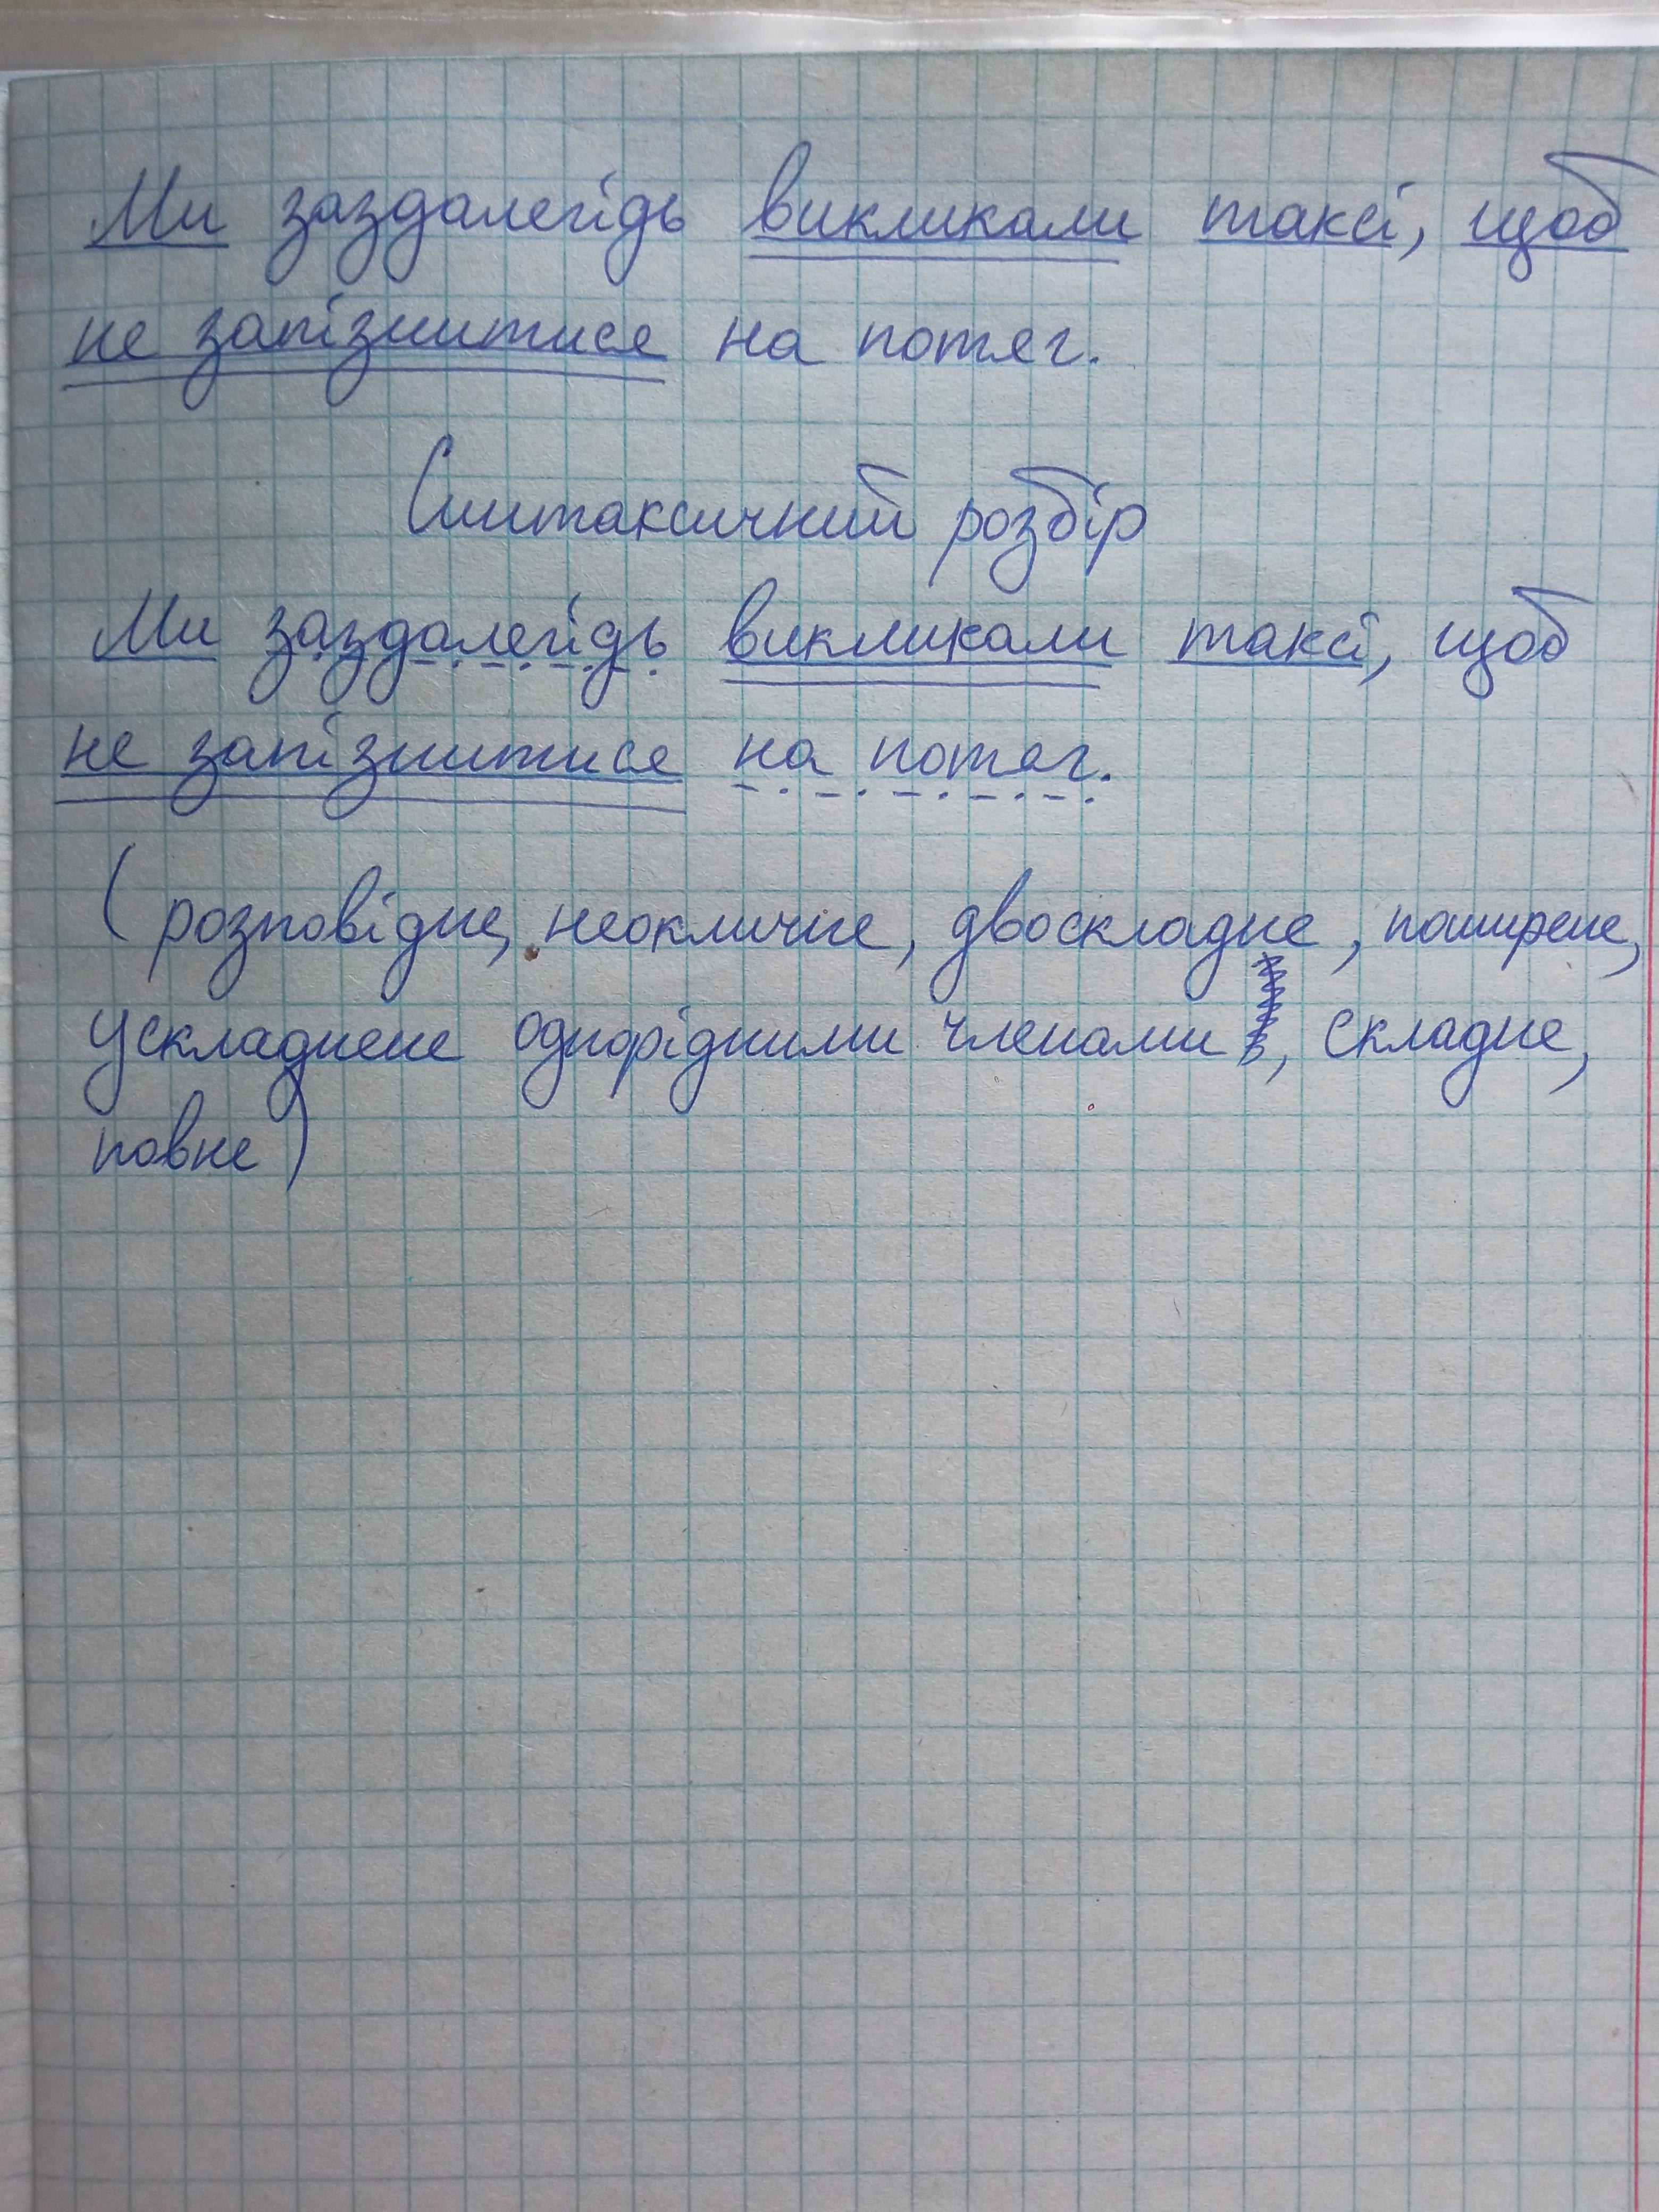 Ми заздалегідь викликали таксі, щоб
не запізнитися на потяг.
Синтаксичний розбір
Ми заздалегідь викликали таксі, щоб
не запізнитися на потяг.
(розповідне, неокличне, двоскладне, поширене,
ускладнене однорідними членами, складне,
повне)